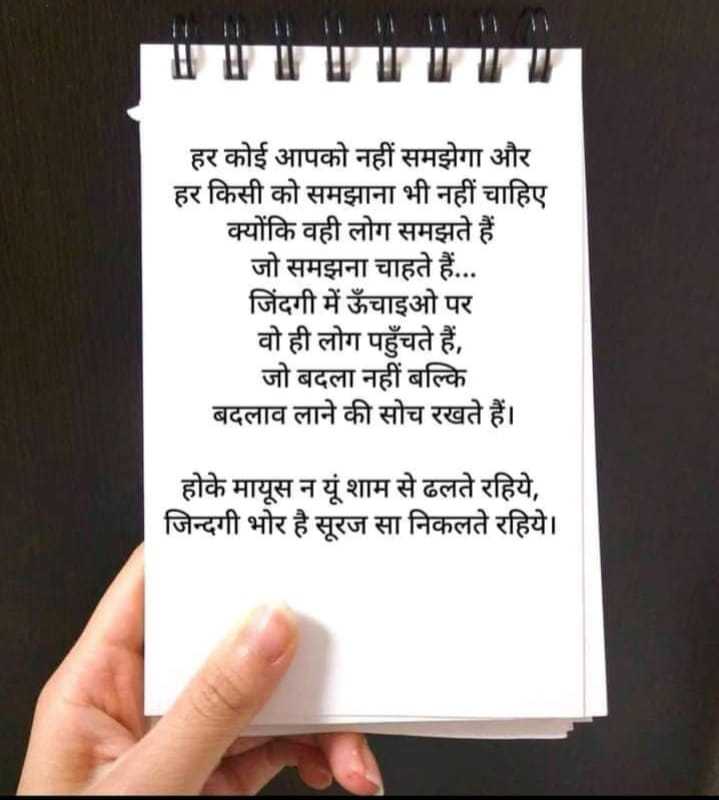 हर कोई आपको नहीं समझेगा और
हर किसी को समझाना भी नहीं चाहिए
क्योंकि वही लोग समझते हैं
जो समझना चाहते हैं...
जिंदगी में ऊँचाइओ पर
वो ही लोग पहुँचते हैं,
जो बदला नहीं बल्कि
बदलाव लाने की सोच रखते हैं।
होके मायूस न यूं शाम से ढलते रहिये,
जिन्दगी भोर है सूरज सा निकलते रहिये।